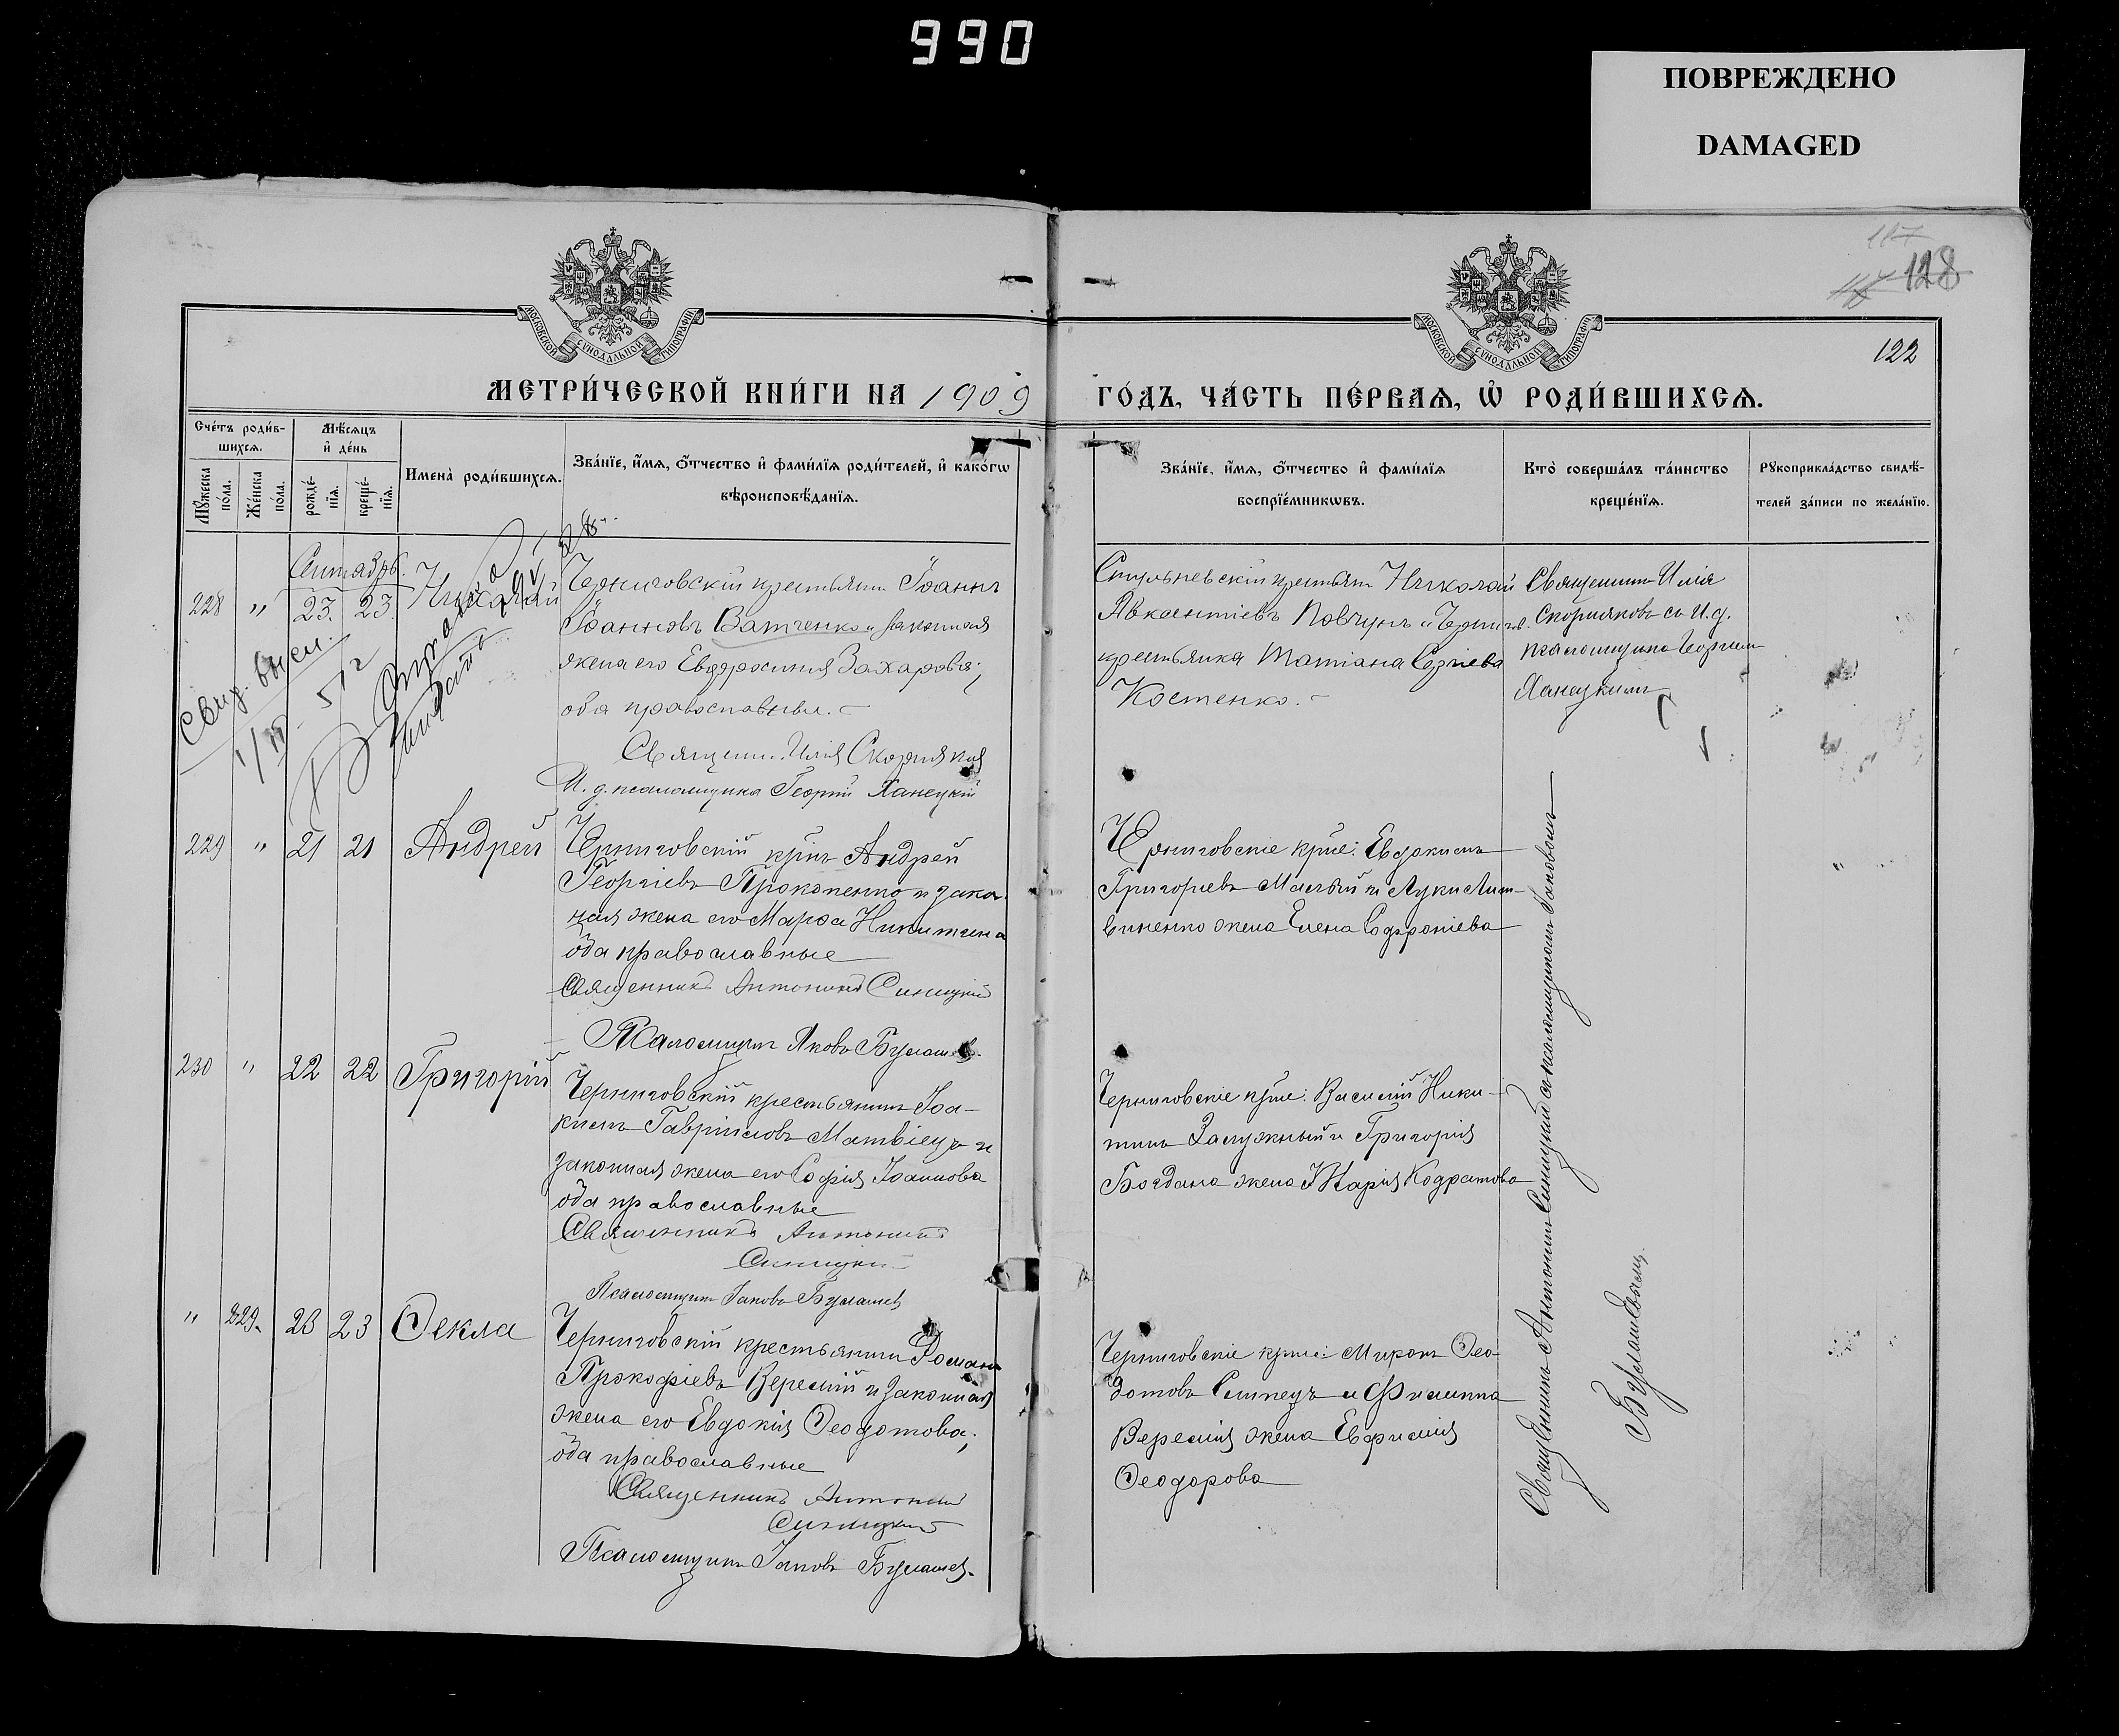 990
ПОВРЕЖДЕНО
DAMAGED
128
122
МОСКОВСКОЙ СѴНОДАЛЬНОЙ ТИПОГРАФІИ
МОСКОВСКОЙ СѴНОДАЛЬНОЙ ТИПОГРАФІИ
МЕТРИ́ЧЕСКОЙ КНИ́ГИ НА 1909
ГО́ДЪ, ЧА́СТЬ ПЕ́РВАѦ, Ѡ҆ РОДИ́ВШИХСѦ.
Сче́тъ роди́в-
шихсѧ.
Мѣ́сѧцъ
и҆ де́нь
Мꙋ́жеска
по́ла.
Же́нска
пола.
рожде́-
нїѧ.
креще́-
нїѧ.
Имена̀ роди́вшихсѧ.
Зва́нїе, и҆́мѧ, ѻ҆́тчество и҆ фами́лїѧ роди́телей, и҆ како́гѡ
вѣроисповѣ́данїѧ.
Зва́нїе, и҆́мѧ, ѻ҆́тчество и҆ фами́лїѧ
воспрїе́мникѡвъ.
Кто̀ соверша́лъ та́инство
креще́нїѧ.
Рꙋкоприкла́дство свидѣ́-
телей за́писи по жела́нїю.
Сентябрь.
228 " 23. 23. Николай
Свид. выси.
512
Черниговскій крестьянин Іоаннъ
Іоанновъ Ватченко и законная
жена его Евфросинія Захарова;
оба православны.
Священн. Илія Скорняков
И. д. псаломщика Георгій Ханецкій
крестьян Николай
Авксентіевъ Повчунъ и Черниг.
крестьянка Татіана Сергіева
Костенко.
Священник Илія
Скорняковъ съ И. д.
псаломщика Георгием
Ханецкимъ
229 " 21 21 Андрей
Черниговскій кр̃инъ Андрей
Георгіевъ Прокопенко и закон-
ная жена его Марѳа Никитина
оба православные
Священникъ Антоній Синицкій
Псаломщикъ Яковъ Булашев.
Черниговскіе крне: Евдокимъ
Григорьевъ Малый и Луки Лит-
виненко жена Елена Софроніева
230 " 22 22 Григорій
Черниговскій крестьянинъ Іоа-
кимъ Гавриловъ Матвіецъ и
законная жена его Софія Іоаннова
оба православные
Священникъ Антоній
Синицкій
Псаломщикъ Іаковъ Булашев
Черниговскіе крне: Василій Ники-
тинъ Заслужный и Григорія
Богдана жена Марія Кодратова
" 229. 23 23 Ѳекла
Черниговскій крестьянинъ Романъ
Прокофіевъ Веремій и законная
жена его Евдокія Ѳеодотова;
оба православные
Священникъ Антоній
Синицкій
Псаломщикъ Іаковъ Булашев.
Черниговскіе крне: Миронъ Ѳео-
дотовъ и Филиппа
Веремія жена Евфимія
Ѳеодорова
Священникъ Антоній Синицкій съ псаломщикомъ Іаковомъ
Булашевымъ